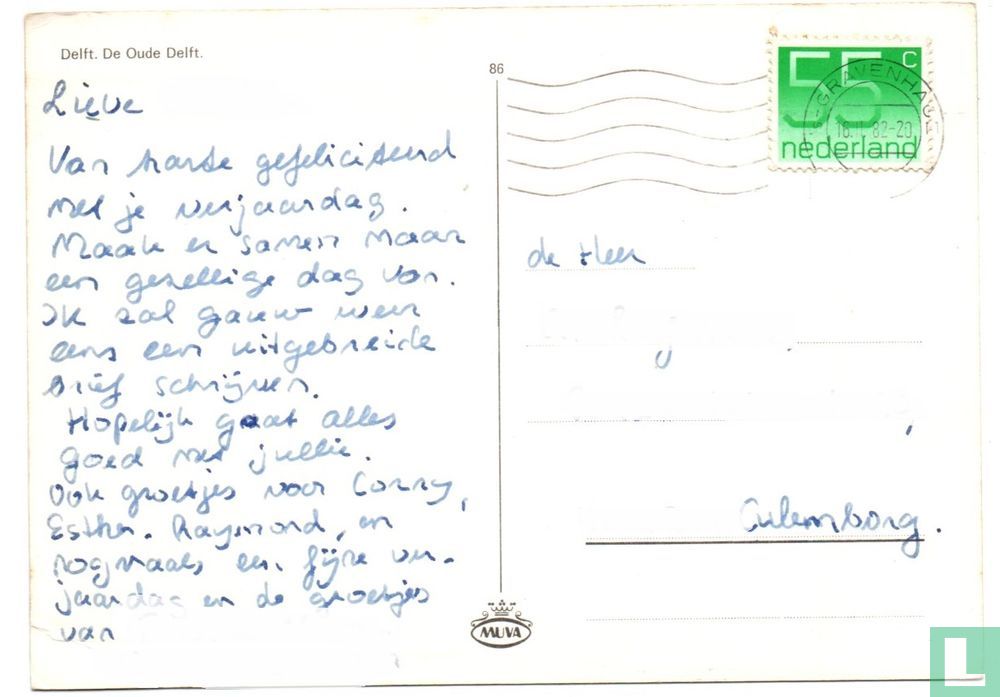 Delft. De Oude Delft.
86
Lieve
Van harte gefeliciteerd
met je verjaardag.
Maak er samen maar
een gezellige dag van.
Ik zal gauw weer
eens een uitgebreide
brief schrijven.
Hopelijk gaat alles
goed met jullie.
Ook groetjes voor Conny,
Esther, Raymond, en
nogmaals een fijne ver-
jaardag en de groetjes
van
55 c
nederland
'S-GRAVENHAGE
16.II.82-20
de Heer
Culemborg.
MUVA
L